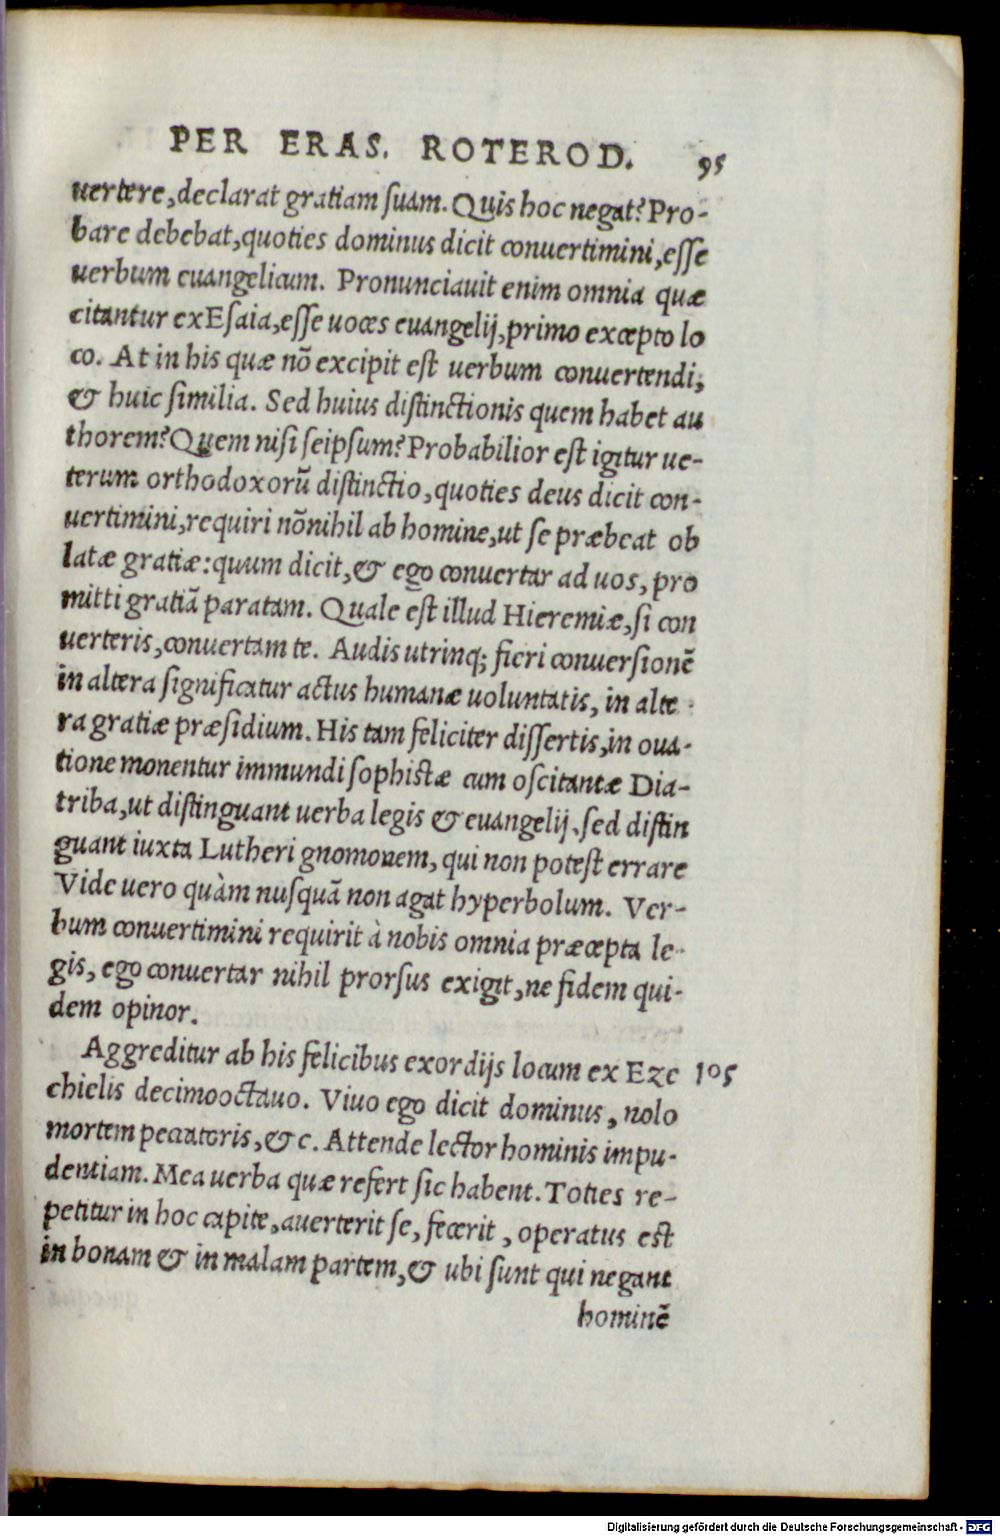 PER ERAS. ROTEROD. 95
uertere, declarat gratiam ſuam. Quis hoc negat? Pro-
bare debebat, quoties dominus dicit conuertimini, eſſe
uerbum euangelicum. Pronunciauit enim omnia quæ
citantur ex Eſaia, eſſe uoces euangelij, primo excepto lo
co. At in his quæ nō excipit eſt uerbum conuertendi,
& huic ſimilia. Sed huius diſtinctionis quem habet au
thorem? Quem niſi ſeipſum? Probabilior eſt igitur ue-
terum orthodoxorū diſtinctio, quoties deus dicit con-
uertimini, requiri nōnihil ab homine, ut ſe præbeat ob
latæ gratiæ: quum dicit, & ego conuertar ad uos, pro
mitti gratiā paratam. Quale eſt illud Hieremiæ, ſi con
uerteris, conuertam te. Audis utrinq; fieri conuerſionē
in altera ſignificatur actus humanæ uoluntatis, in alte
ra gratiæ præſidium. His tam feliciter diſſertis, in oua-
tione monentur immundi ſophiſtæ cum oſcitantæ Dia-
triba, ut diſtinguant uerba legis & euangelij. ſed diſtin
guant iuxta Lutheri gnomonem, qui non poteſt errare
Vide uero quàm nuſquā non agat hyperbolum. Ver-
bum conuertimini requirit à nobis omnia præcepta le-
gis, ego conuertar nihil prorſus exigit, ne fidem qui-
dem opinor.
Aggreditur ab his felicibus exordijs locum ex Eze 105
chielis decimooctauo. Viuo ego dicit dominus, nolo
mortem peccatoris, & c. Attende lector hominis impu-
dentiam. Mea uerba quæ refert ſic habent. Toties re-
petitur in hoc capite, auerterit ſe, fecerit, operatus eſt
in bonam & in malam partem, & ubi ſunt qui negant
hominē
Digitalisierung gefördert durch die Deutsche Forschungsgemeinschaft - DFG